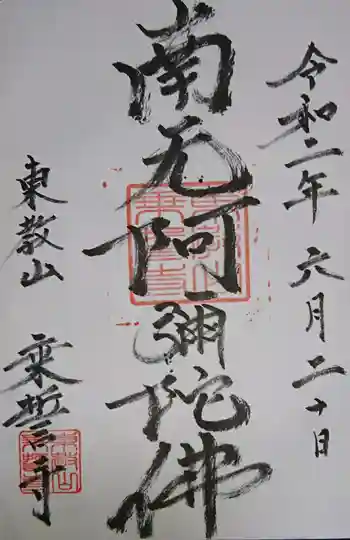 令和二年 六月二十日
南无阿彌陀佛
東教山 乗誓寺